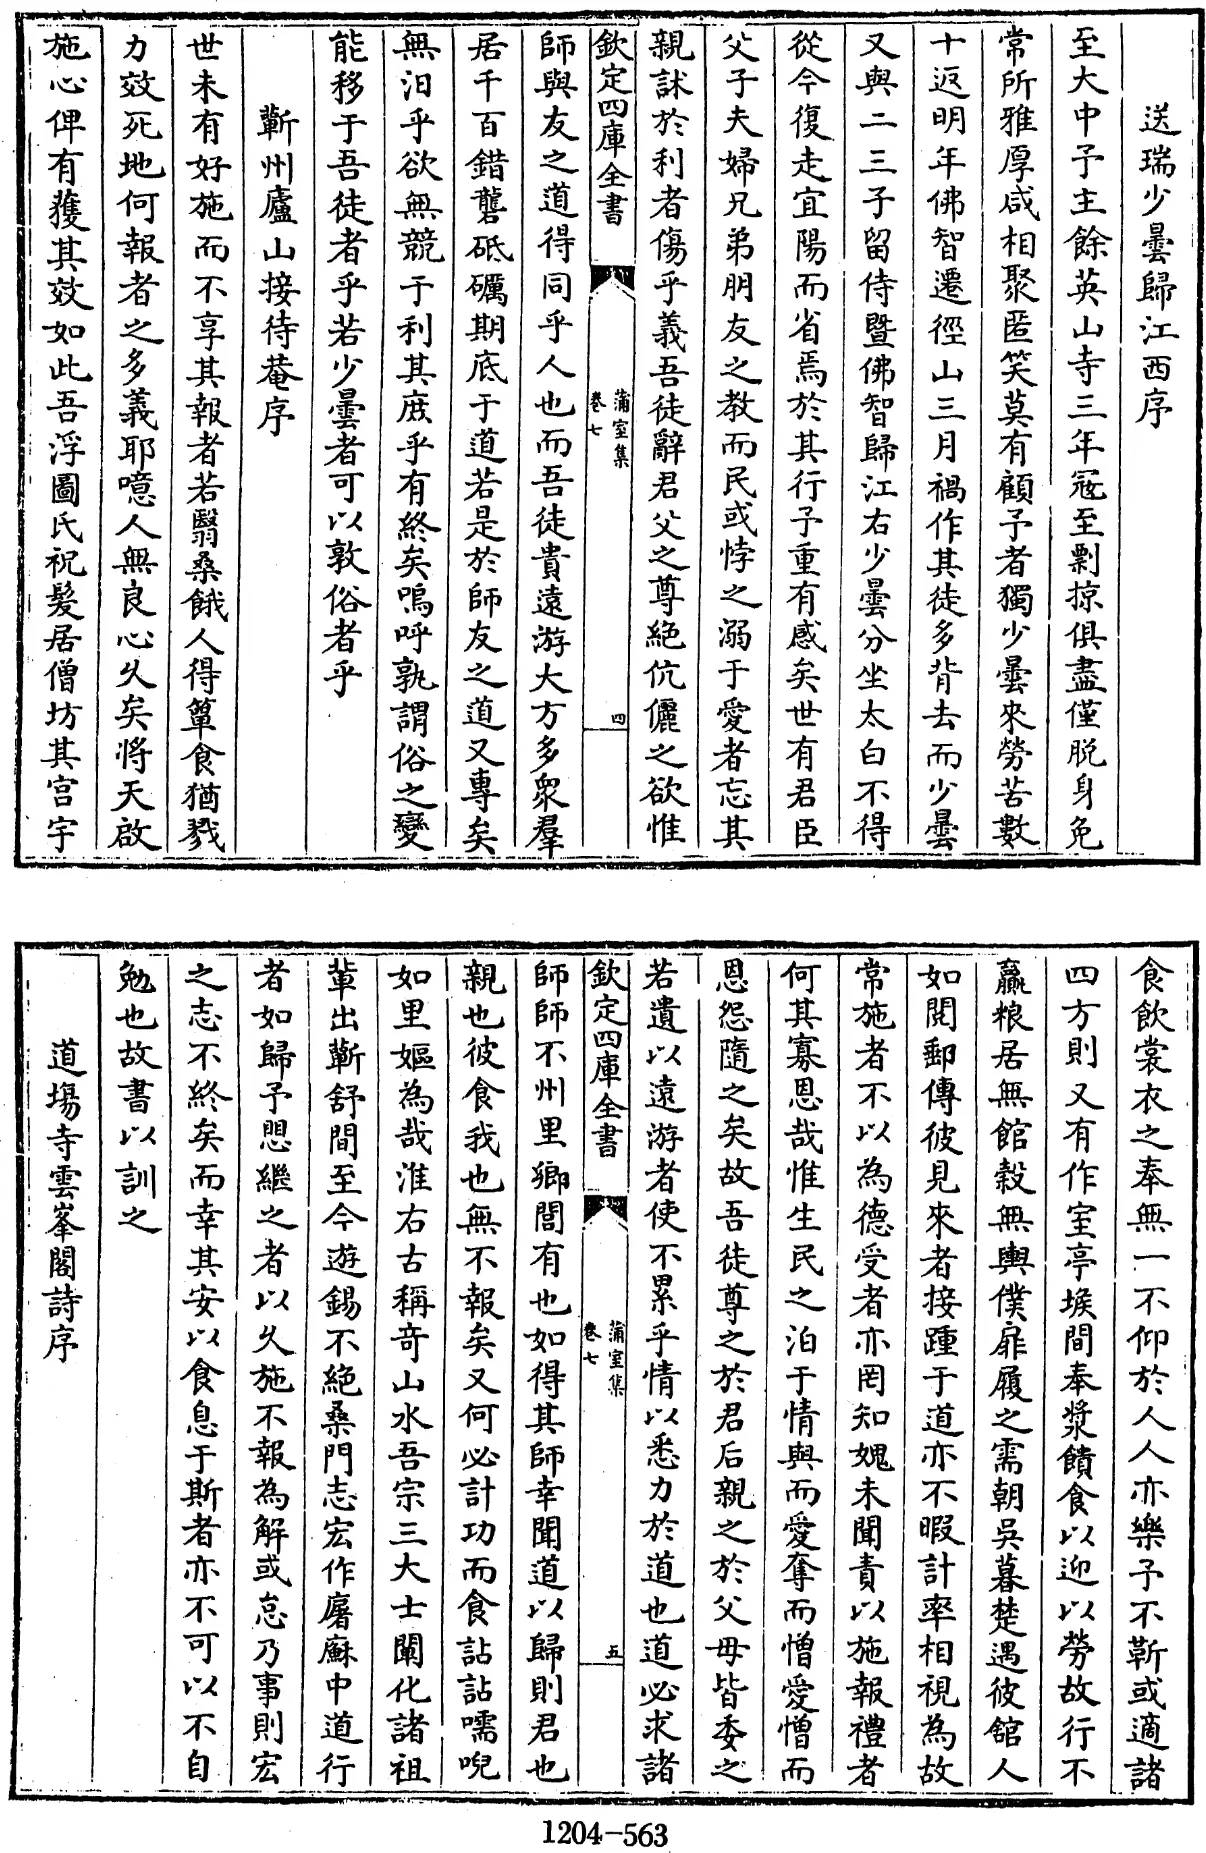 送瑞少曇歸江西序
至大中予主餘英山寺三年寇至剽掠俱盡僅脫身免
常所雅厚咸相聚匿笑莫有顧予者獨少曇來勞苦數
十返明年佛智遷徑山三月禍作其徒多背去而少曇
又與二三子留侍暨佛智歸江右少曇分坐太白不得
從今復走宜陽而省焉於其行予重有感矣世有君臣
父子夫婦兄弟朋友之教而民或悖之溺于愛者忘其
親訹於利者傷乎義吾徒辭君父之尊絕伉儷之欲惟
欽定四庫全書
蒲室集
卷七
四
師與友之道得同乎人也而吾徒貴遠游大方多衆羣
居千百錯礱砥礪期底于道若是於師友之道又專矣
無汨乎欲無競于利其庶乎有終矣嗚呼孰謂俗之變
能移于吾徒者乎若少曇者可以敦俗者乎
蘄州廬山接待菴序
世未有好施而不享其報者若翳桑餓人得簞食猶戮
力效死地何報者之多義耶噫人無良心久矣將天啟
施心俾有獲其效如此吾浮圖氏祝髮居僧坊其宮宇
食飲裳衣之奉無一不仰於人人亦樂予不靳或適諸
四方則又有作室亭堠間奉漿饋食以迎以勞故行不
羸粮居無館穀無輿僕屝履之需朝吳暮楚遇彼舘人
如閱郵傳彼見來者接踵于道亦不暇計率相視為故
常施者不以為德受者亦罔知媿未聞責以施報禮者
何其寡恩哉惟生民之汨于情與而愛奪而憎愛憎而
恩怨隨之矣故吾徒尊之於君后親之於父母皆委之
若遺以遠游者使不累乎情以悉力於道也道必求諸
欽定四庫全書
蒲室集
卷七
五
師師不州里鄉閭有也如得其師幸聞道以歸則君也
親也彼食我也無不報矣又何必計功而食詀詀嚅唲
如里嫗為哉淮右古稱奇山水吾宗三大士闡化諸祖
輩出蘄舒間至今遊錫不絕桑門志宏作屠蘇中道行
者如歸予愳繼之者以久施不報為解或怠乃事則宏
之志不終矣而幸其安以食息于斯者亦不可以不自
勉也故書以訓之
道場寺雲峯閣詩序
1204-563